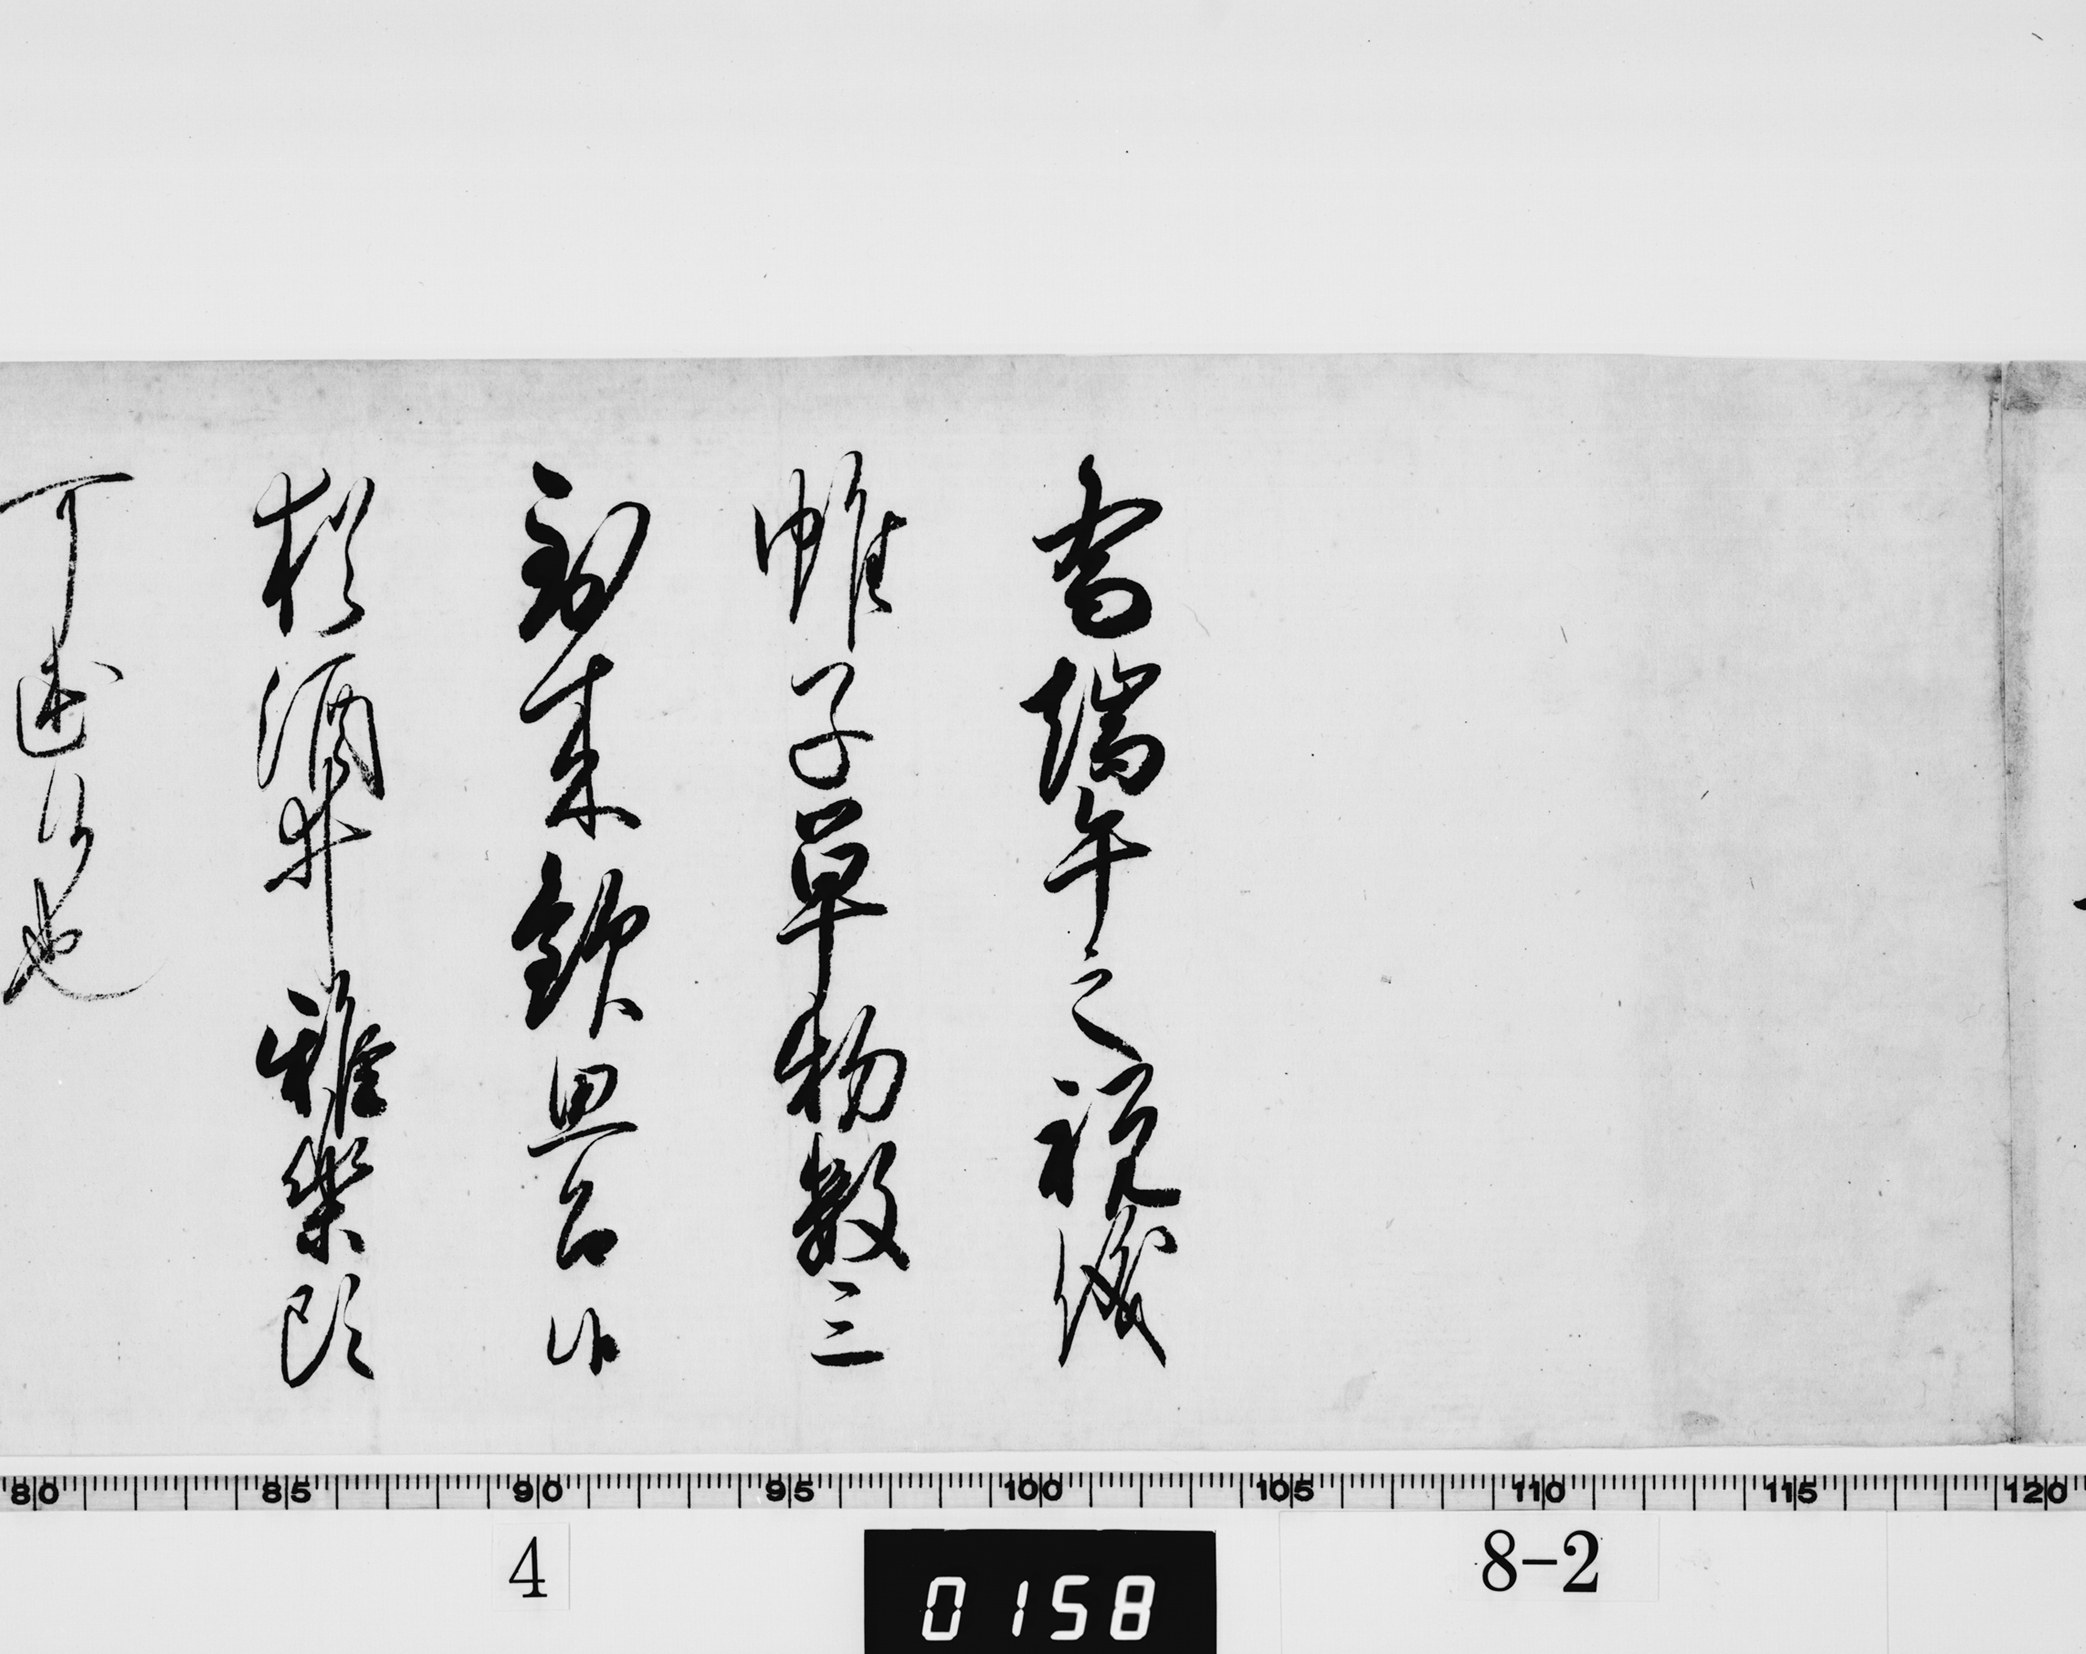 為端午之祝儀
帷子単物数三
到来欽思召候
猶酒井雅楽頭
可述候也
80 85 90 95 100 105 110 115 120
4
0158
8-2